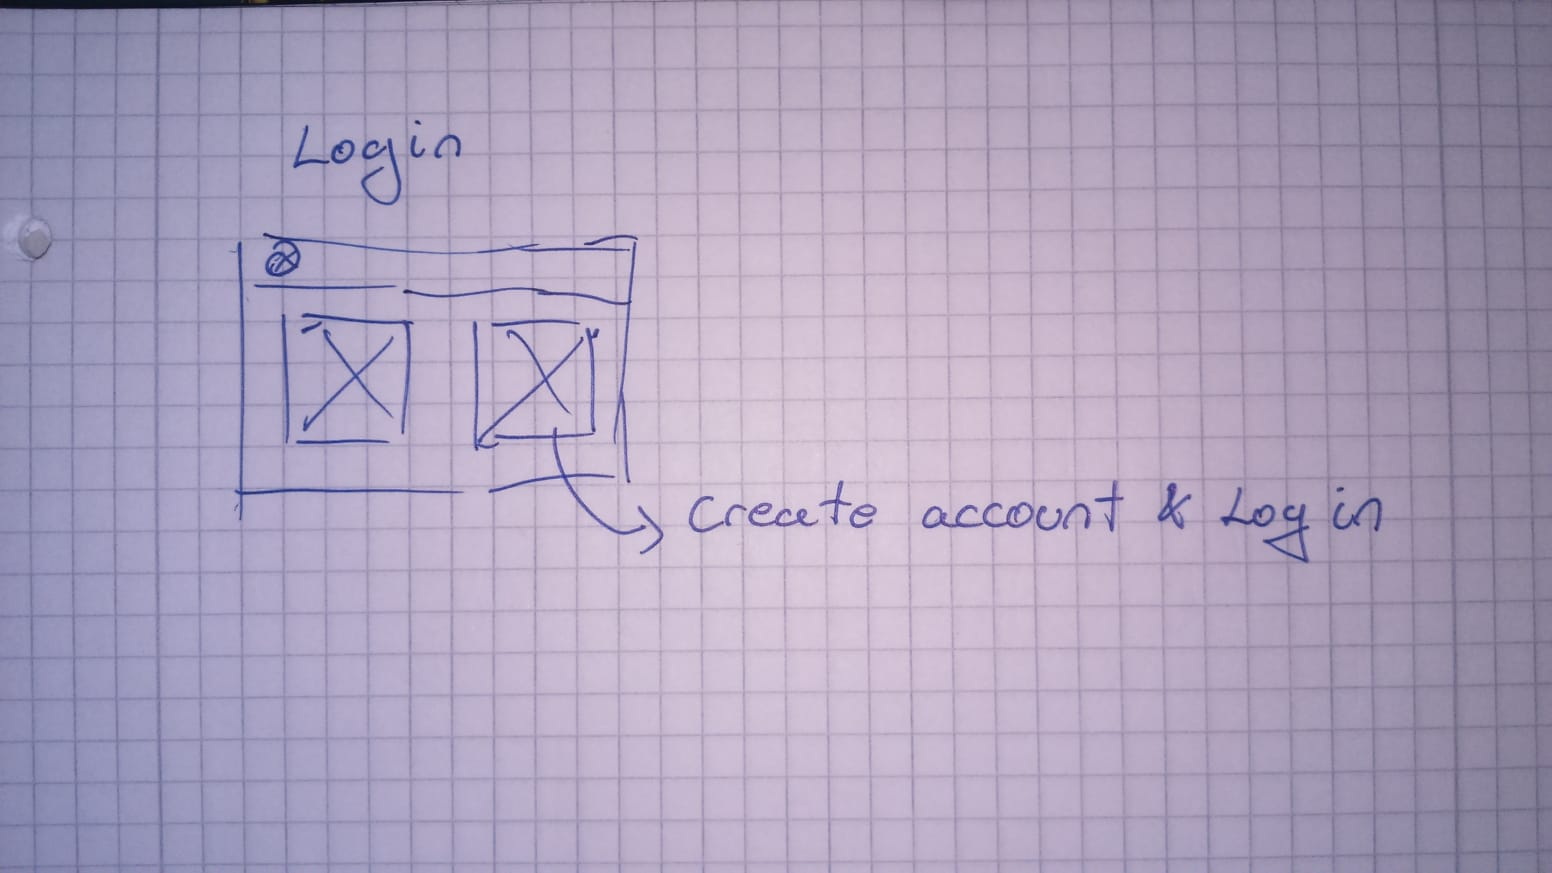 Login
Create account & Log in